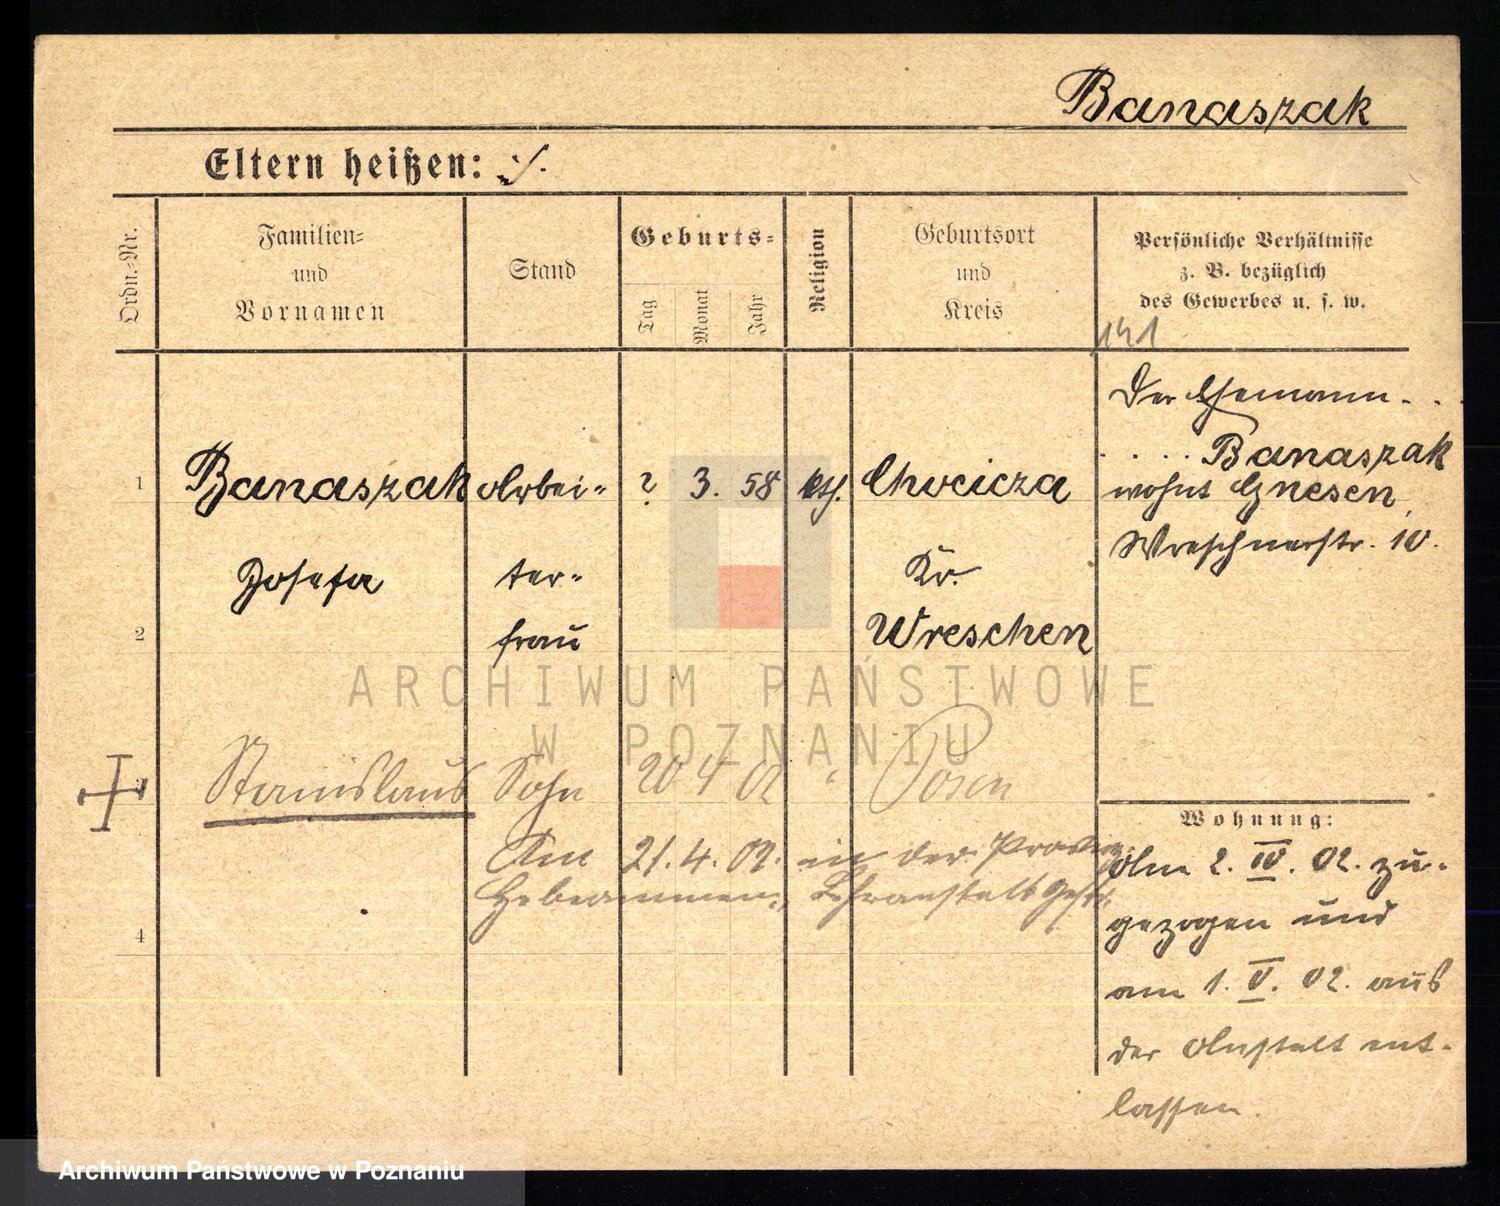 Banaszak
Eltern heißen: ./.
Ordn.-Nr.
Familien-
und
Vornamen
Stand
Geburts-
Tag
Monat
Jahr
Religion
Geburtsort
und
Kreis
Persönliche Verhältnisse
z. B. bezüglich
des Gewerbes u. s. w.
141
Der Ehemann . .
. . . . Banaszak
wohnt Gnesen,
Wreschnerstr. 10.
1 Banaszak Arbei- ? 3. 58 kth. Chwicza
Josefa ter- Kr.
2 frau Wreschen
ARCHIWUM PAŃSTWOWE
W POZNANIU
Stanislaus Sohn 20 4 02 " Posen
Am 21. 4. 02. in der Provinz.
Hebeammen- Lehranstalt gest.
4
Wohnung:
Am 2. IV. 02. zu-
gezogen und
am 1. V. 02. aus
der Anstalt ent-
lassen.
Archiwum Państwowe w Poznaniu